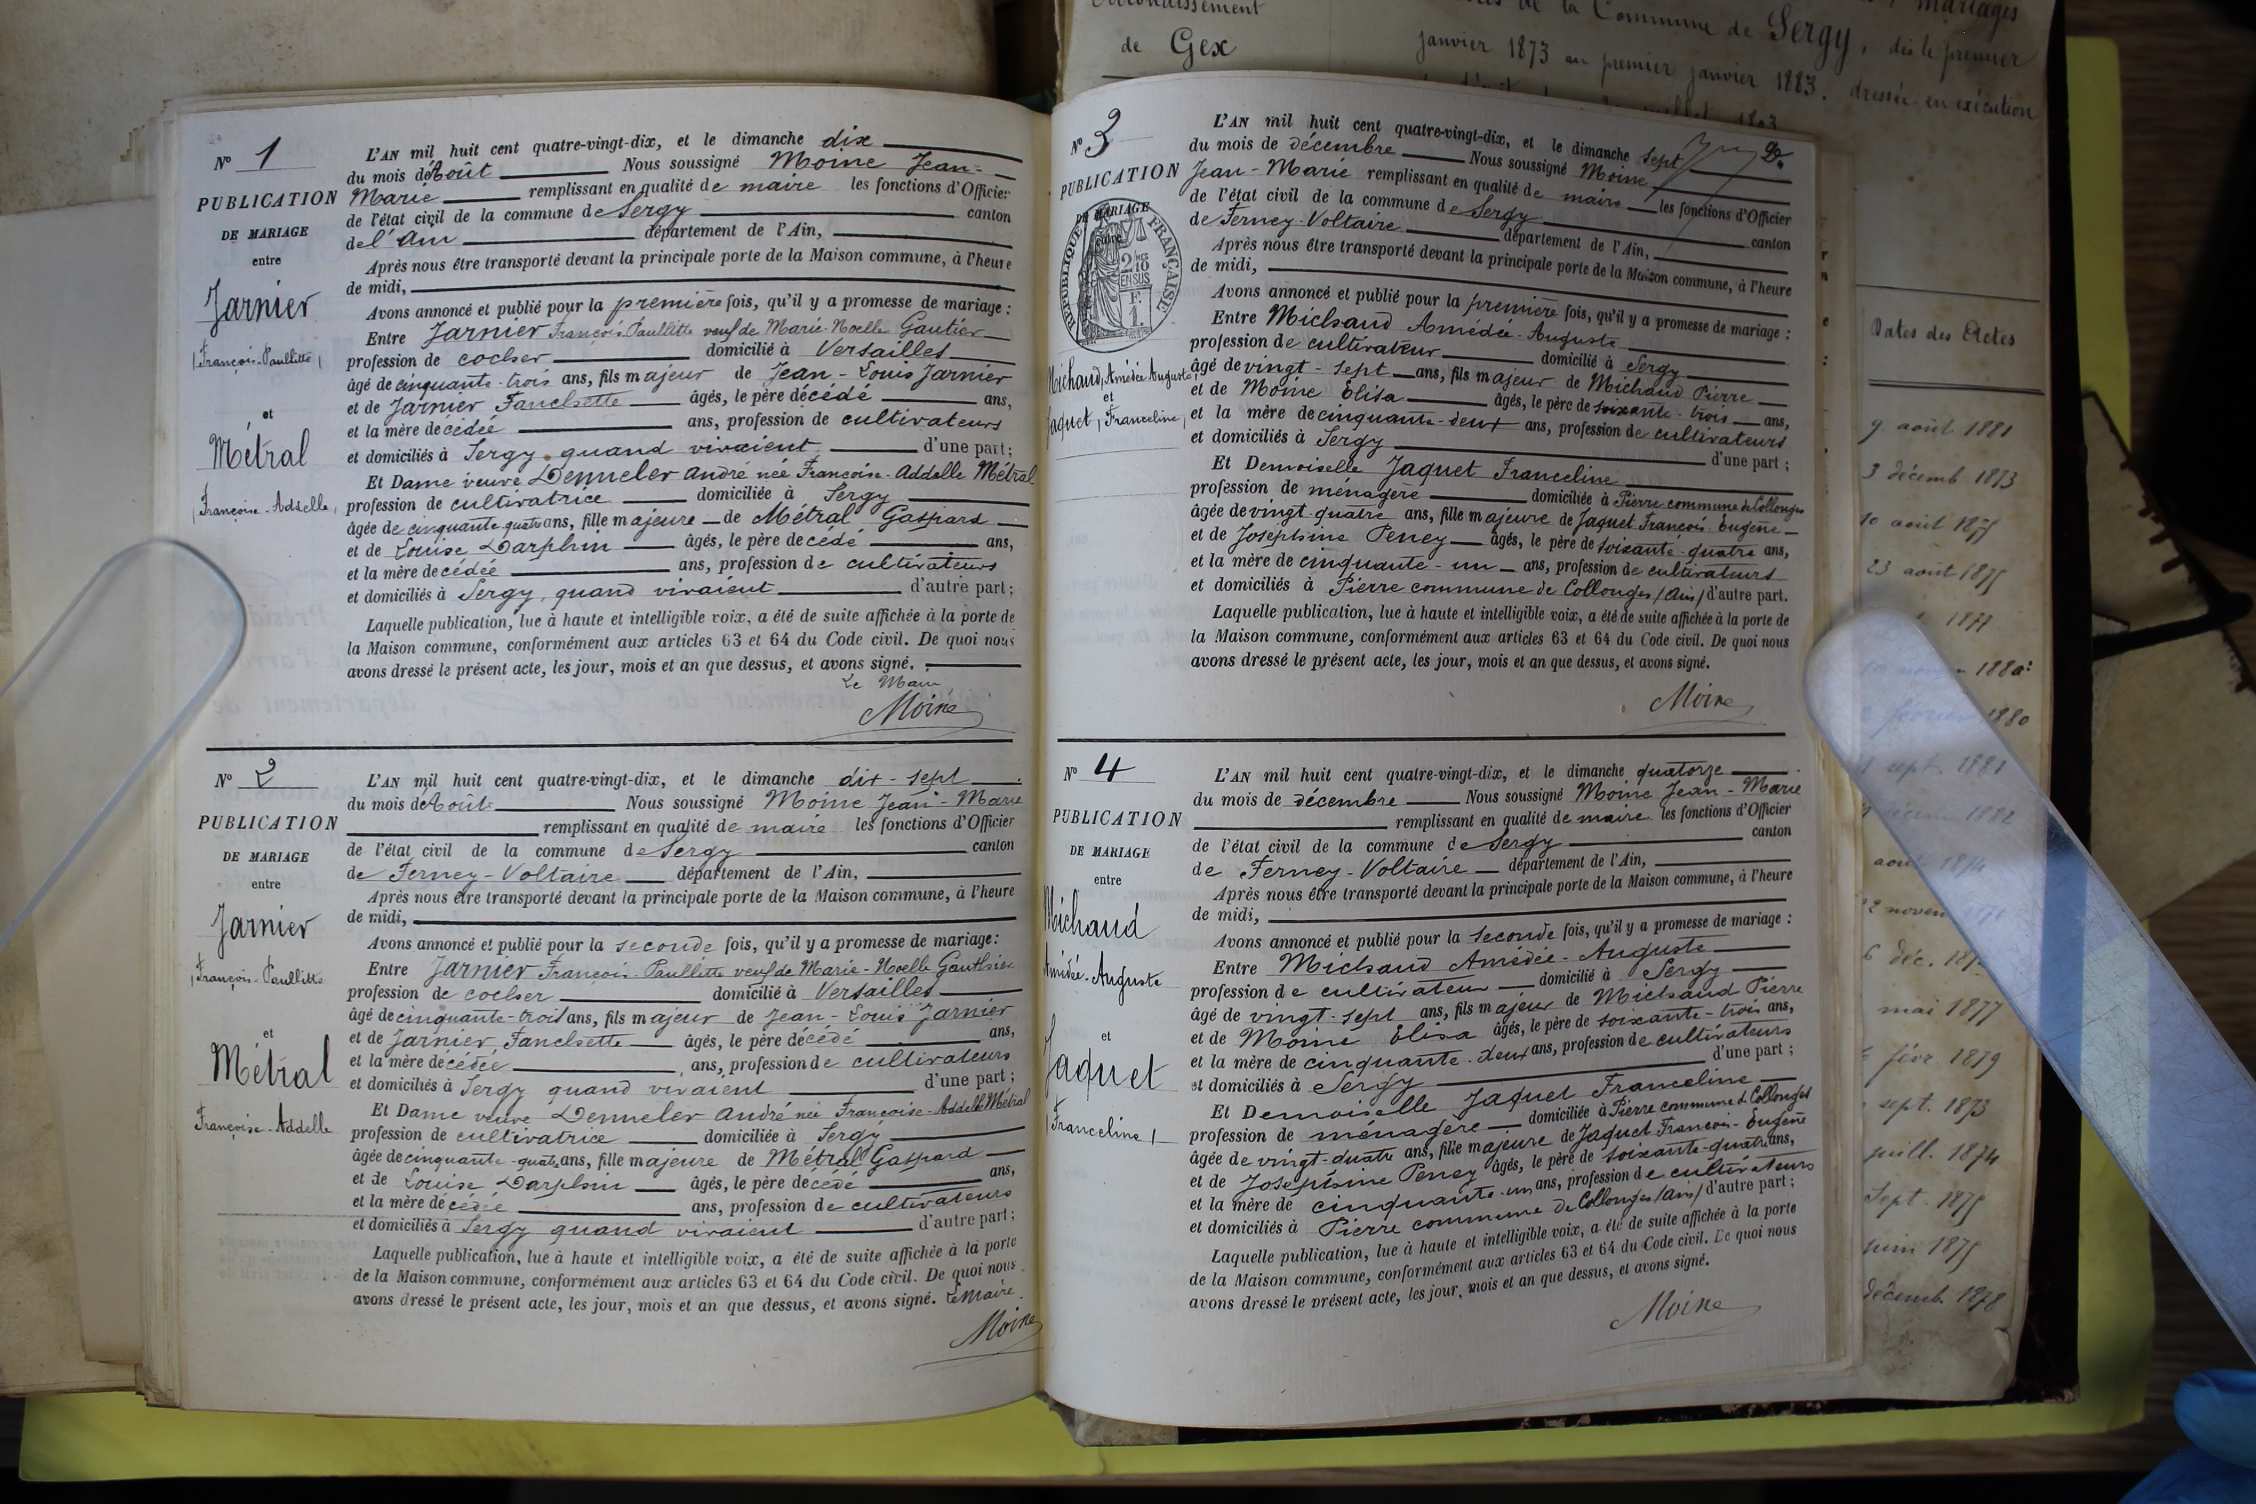 N° 1
PUBLICATION
DE MARIAGE
entre
Jarnier
(François-Paullitte)
et
Métral
(Françoise-Addelle)
L'AN mil huit cent quatre-vingt-dix, et le dimanche dix
du mois d'Août Nous soussigné Moine Jean-
Marie remplissant en qualité de maire les fonctions d'Officier
de l'état civil de la commune de Sergy canton
de l'Ain département de l'Ain,
Après nous être transporté devant la principale porte de la Maison commune, à l'heure
de midi,
Avons annoncé et publié pour la première fois, qu'il y a promesse de mariage :
Entre Jarnier François-Paullitte veuf de Marie-Noelle Gautier
profession de cocher domicilié à Versailles
âgé de cinquante-trois ans, fils majeur de Jean-Louis Jarnier
et de Jarnier Fanchette âgés, le père décédé ans,
et la mère décédée ans, profession de cultivateurs
et domiciliés à Sergy quand vivaient d'une part ;
Et Dame veuve Denneler André née Françoise-Addelle Métral
profession de cultivatrice domiciliée à Sergy
âgée de cinquante-quatre ans, fille majeure de Métral Gaspard
et de Louise Darphin âgés, le père décédé ans,
et la mère décédée ans, profession de cultivateurs
et domiciliés à Sergy, quand vivaient d'autre part ;
Laquelle publication, lue à haute et intelligible voix, a été de suite affichée à la porte de
la Maison commune, conformément aux articles 63 et 64 du Code civil. De quoi nous
avons dressé le présent acte, les jour, mois et an que dessus, et avons signé.
Le Maire
Moine
N° 2
PUBLICATION
DE MARIAGE
entre
Jarnier
(François-Paullitte
et
Métral
Françoise-Addelle
L'AN mil huit cent quatre-vingt-dix, et le dimanche dix-sept
du mois d'Août Nous soussigné Moine Jean-Marie
remplissant en qualité de maire les fonctions d'Officier
de l'état civil de la commune de Sergy canton
de Ferney-Voltaire département de l'Ain,
Après nous être transporté devant la principale porte de la Maison commune, à l'heure
de midi,
Avons annoncé et publié pour la seconde fois, qu'il y a promesse de mariage :
Entre Jarnier François-Paullitte veuf de Marie-Noelle Gauthier
profession de cocher domicilié à Versailles
âgé de cinquante-trois ans, fils majeur de Jean-Louis Jarnier
et de Jarnier Fanchette âgés, le père décédé ans,
et la mère décédée ans, profession de cultivateurs
et domiciliés à Sergy quand vivaient d'une part ;
Et Dame veuve Denneler André née Françoise-Addelle Métral
profession de cultivatrice domiciliée à Sergy
âgée de cinquante-quatre ans, fille majeure de Métral Gaspard
et de Louise Darphin âgés, le père décédé ans,
et la mère décédé ans, profession de cultivateurs
et domiciliés à Sergy quand vivaient d'autre part ;
Laquelle publication, lue à haute et intelligible voix, a été de suite affichée à la porte
de la Maison commune, conformément aux articles 63 et 64 du Code civil. De quoi nous
avons dressé le présent acte, les jour, mois et an que dessus, et avons signé. Le Maire.
Moine
N° 3
PUBLICATION
DE MARIAGE
entre
RÉPUBLIQUE FRANÇAISE
2/10 EN SUS
F.
1.
Michaud, Amédée Auguste,
et
Jaquet, Franceline,
2.
L'AN mil huit cent quatre-vingt-dix, et le dimanche sept
du mois de décembre Nous soussigné Moine
Jean-Marie remplissant en qualité de maire les fonctions d'Officier
de l'état civil de la commune de Sergy canton
de Ferney-Voltaire département de l'Ain,
Après nous être transporté devant la principale porte de la Maison commune, à l'heure
de midi,
Avons annoncé et publié pour la première fois, qu'il y a promesse de mariage :
Entre Michaud Amédée-Auguste
profession de cultivateur domicilié à Sergy
âgé de vingt-sept ans, fils majeur de Michaud Pierre
et de Moine Elisa âgés, le père de soixante-trois ans,
et la mère de cinquante-deux ans, profession de cultivateurs
et domiciliés à Sergy d'une part ;
Et Demoiselle Jaquet Franceline
profession de ménagère domiciliée à Pierre commune de Collonges
âgée de vingt-quatre ans, fille majeure de Jaquet François-Eugène
et de Josephine Peney âgés, le père de soixante-quatre ans,
et la mère de cinquante-un ans, profession de cultivateurs
et domiciliés à Pierre commune de Collonges (Ain) d'autre part.
Laquelle publication, lue à haute et intelligible voix, a été de suite affichée à la porte de
la Maison commune, conformément aux articles 63 et 64 du Code civil. De quoi nous
avons dressé le présent acte, les jour, mois et an que dessus, et avons signé.
Moine
N° 4
PUBLICATION
DE MARIAGE
entre
Michaud
Amédée-Auguste
et
Jaquet
(Franceline)
L'AN mil huit cent quatre-vingt-dix, et le dimanche quatorze
du mois de décembre Nous soussigné Moine Jean-Marie
remplissant en qualité de maire les fonctions d'Officier
de l'état civil de la commune de Sergy canton
de Ferney-Voltaire département de l'Ain,
Après nous être transporté devant la principale porte de la Maison commune, à l'heure
de midi,
Avons annoncé et publié pour la seconde fois, qu'il y a promesse de mariage :
Entre Michaud Amédée-Auguste
profession de cultivateur domicilié à Sergy
âgé de vingt-sept ans, fils majeur de Michaud Pierre
et de Moine Elisa âgés, le père de soixante-trois ans,
et la mère de cinquante-deux ans, profession de cultivateurs
et domiciliés à Sergy d'une part ;
Et Demoiselle Jaquet Franceline
profession de ménagère domiciliée à Pierre commune de Collonges
âgée de vingt-quatre ans, fille majeure de Jaquet François-Eugène
et de Josephine Peney âgés, le père de soixante-quatre ans,
et la mère de cinquante-un ans, profession de cultivateurs
et domiciliés à Pierre commune de Collonges (Ain) d'autre part ;
Laquelle publication, lue à haute et intelligible voix, a été de suite affichée à la porte
de la Maison commune, conformément aux articles 63 et 64 du Code civil. De quoi nous
avons dressé le présent acte, les jour, mois et an que dessus, et avons signé.
Moine
de Gex
mariages
de la Commune de Sergy, dès le premier
janvier 1873 au premier janvier 1883. dressée en exécution
Dates des Actes
9 août 1881
3 décemb 1873
10 août 1875
23 août 1875
1877
1880
février 1880
sept. 1881
1882
août 1874
22 novem
6 déc.
mai 1877
févr. 1879
sept. 1873
juill. 1874
Sept. 1875
juin 1875
décemb. 1878